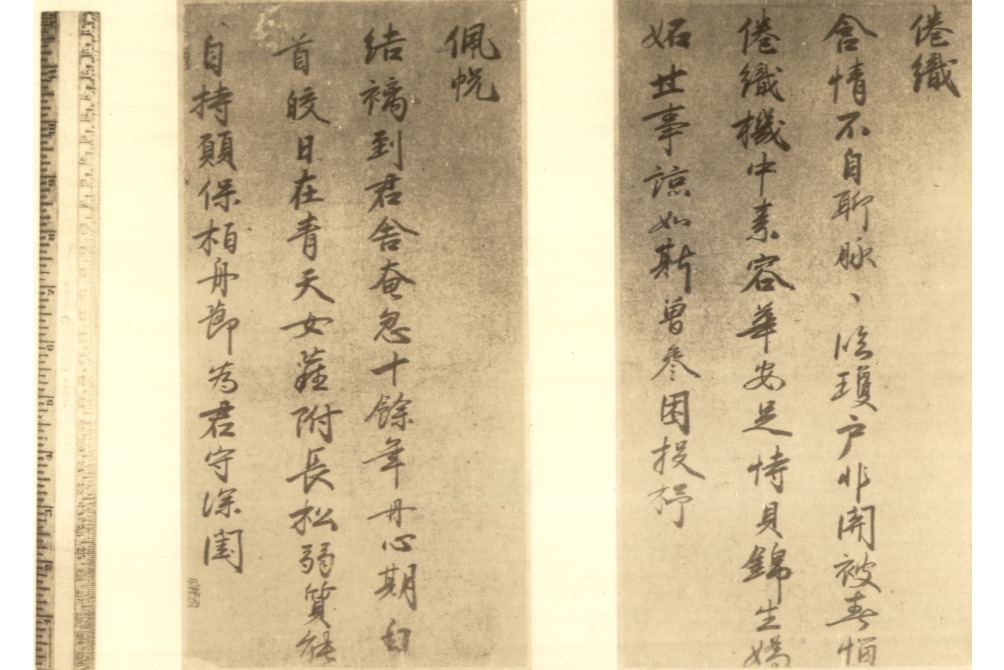 倦織
含情不自聊脉、臨瓊户非開被春惱
倦織機中素容華安足恃貝錦生
妬世事諒如斯曾參困投杼
佩帨
結褵到君舍奄忽十餘年丹心期白
首皎日在青天女蘿附長松弱質能
自持願保柏舟節為君守深閨